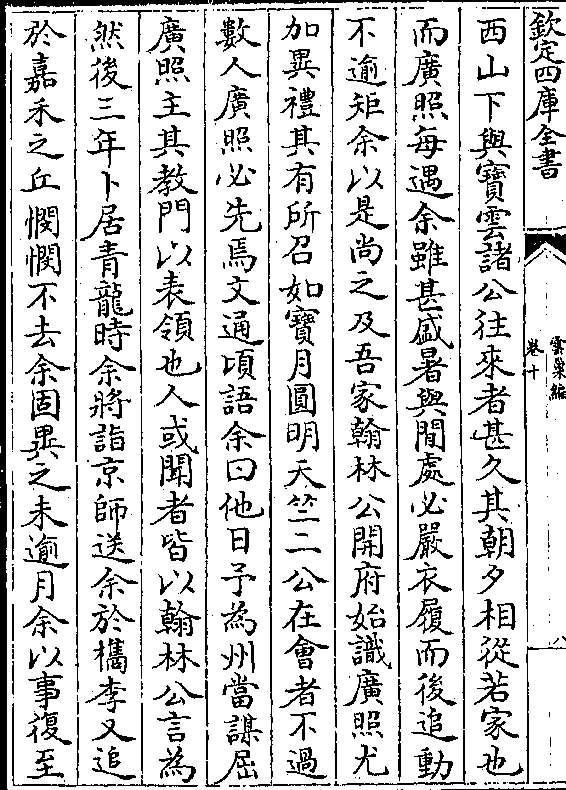 欽定四庫全書
雲巢編
卷十
八
西山下與寳雲諸公往來者甚久其朝夕相從若家也
而廣照每遇余雖甚盛暑與閒處必嚴衣履而後追動
不逾矩余以是尚之及吾家翰林公開府始識廣照尤
加異禮其有所召如寳月圓明天竺二公在會者不過
數人廣照必先焉文通頃語余曰他日予為州當謀屈
廣照主其教門以表領也人或聞者皆以翰林公言為
然後三年卜居青龍時余將詣京師送余於檇李又追
於嘉禾之丘憫憫不去余固異之未逾月余以事復至